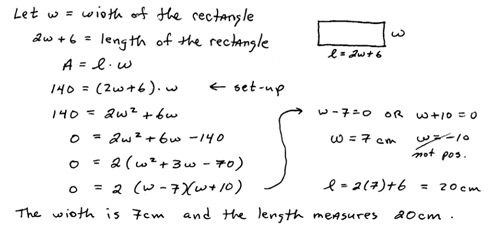 Let w = width of the rectangle
2w+6 = length of the rectangle
w
l = 2w+6
A = l · w
140 = (2w+6) · w ← set-up
140 = 2w² + 6w
0 = 2w² + 6w - 140
0 = 2(w² + 3w - 70)
0 = 2 (w-7)(w+10)
w-7=0 OR w+10=0
w = 7 cm w = -10
not pos.
l = 2(7)+6 = 20cm
The width is 7cm and the length measures 20cm.